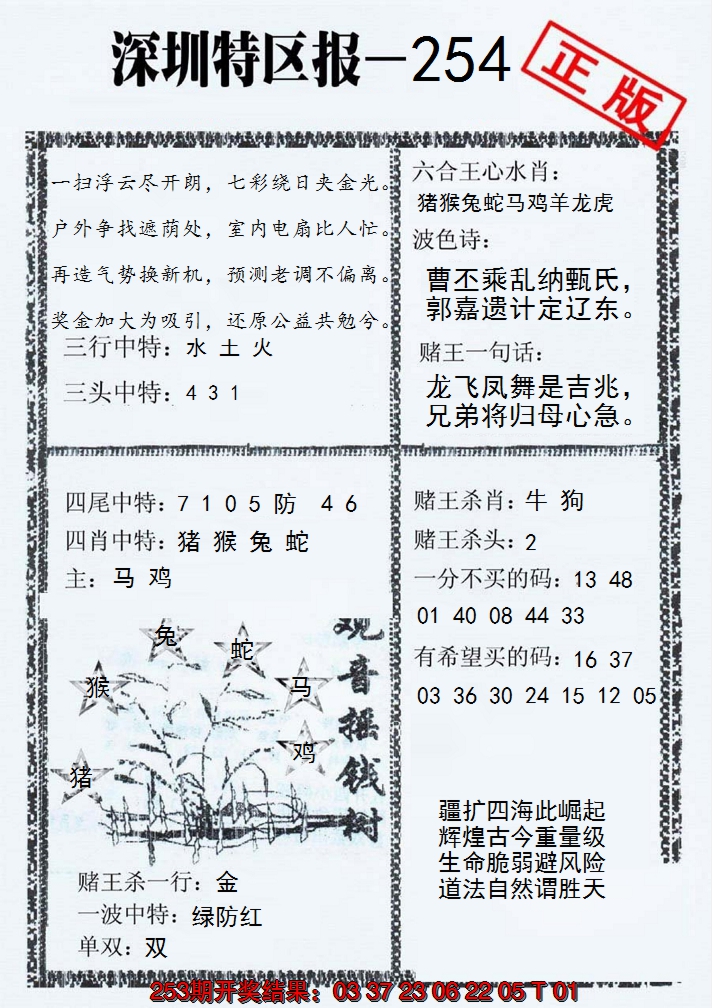 深圳特区报－254
正版
一扫浮云尽开朗，七彩绕日夹金光。
户外争找遮荫处，室内电扇比人忙。
再造气势换新机，预测老调不偏离。
奖金加大为吸引，还原公益共勉兮。
三行中特：水 土 火
三头中特：4 3 1
六合王心水肖：
猪猴兔蛇马鸡羊龙虎
波色诗：
曹丕乘乱纳甄氏，
郭嘉遗计定辽东。
赌王一句话：
龙飞凤舞是吉兆，
兄弟将归母心急。
四尾中特：7 1 0 5 防 4 6
四肖中特：猪 猴 兔 蛇
主：马 鸡
观音摇钱树
兔
蛇
猴
马
鸡
猪
赌王杀一行：金
一波中特：绿防红
单双：双
赌王杀肖：牛 狗
赌王杀头：2
一分不买的码：13 48
01 40 08 44 33
有希望买的码：16 37
03 36 30 24 15 12 05
疆扩四海此崛起
辉煌古今重量级
生命脆弱避风险
道法自然谓胜天
253期开奖结果：03 37 23 06 22 05 T 01